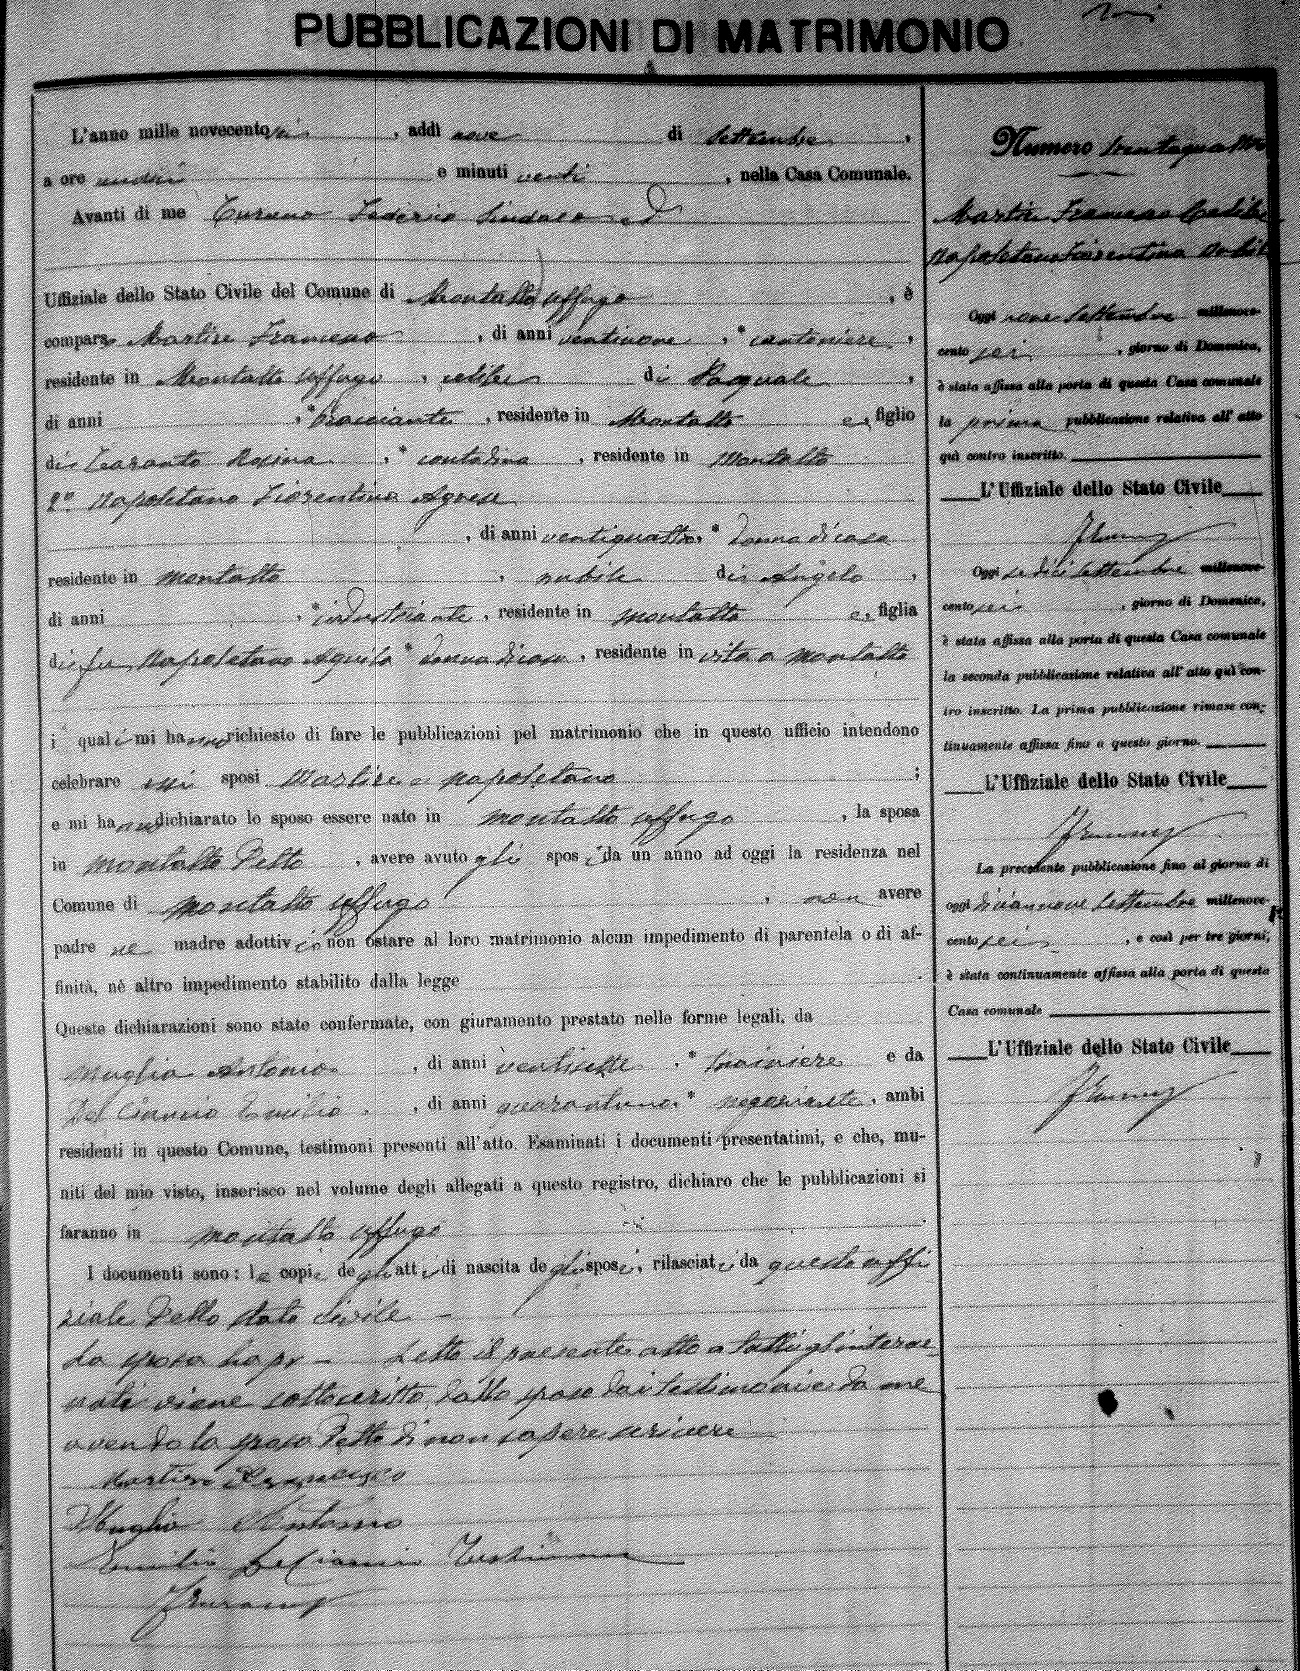 PUBBLICAZIONI DI MATRIMONIO
L'anno mille novecento sei , addì nove di settembre ,
a ore undici e minuti venti , nella Casa Comunale.
Avanti di me Federico Sindaco ed
Uffiziale dello Stato Civile del Comune di Montalto Uffugo , è
compars Martire Francesco , di anni ventinove , * cantoniere ,
residente in Montalto Uffugo , celibe di Pasquale ,
di anni , * bracciante , residente in Montalto e , figlio
di Taranto Rosina , * contadina , residente in Montalto
2° Napoletano Fiorentina Agnese
, di anni ventiquattro, * donna di casa
residente in Montalto , nubile di Angelo ,
di anni , * industriante , residente in Montalto e , figlia
di fu Napoletano Aquila * donna di casa , residente in vita a Montalto
i quali mi hanno richiesto di fare le pubblicazioni pel matrimonio che in questo ufficio intendono
celebrare essi sposi Martire e Napoletano ;
e mi hanno dichiarato lo sposo essere nato in Montalto Uffugo , la sposa
in Montalto detto , avere avuto gli sposi da un anno ad oggi la residenza nel
Comune di Montalto Uffugo , non avere
padre ne madre adottivi e non ostare al loro matrimonio alcun impedimento di parentela o di af-
finità, nè altro impedimento stabilito dalla legge .
Queste dichiarazioni sono state confermate, con giuramento prestato nelle forme legali, da
Muglia Antonio , di anni ventisette , * trainiere e da
Emilio , di anni quarantuno, * negoziante , ambi
residenti in questo Comune, testimoni presenti all'atto. Esaminati i documenti presentatimi, e che, mu-
niti del mio visto, inserisco nel volume degli allegati a questo registro, dichiaro che le pubblicazioni si
faranno in Montalto Uffugo .
I documenti sono: le copie degli atti di nascita degli sposi, rilasciati da questo uffi
ziale dello stato civile
La sposa ha pr — Letto il presente atto a tutti gl'interve
nuti viene sottoscritto dallo sposo dai testimoni e da me
avendo la sposa detto di non sapere scrivere
Martire Francesco
Muglia Antonio
Emilio Testimone
Numero trentaquattro
Martire Francesco celibe
Napoletano Fiorentina nubile
Oggi nove settembre millenove-
cento sei , giorno di Domenica,
è stata affissa alla porta di questa Casa comunale
la prima pubblicazione relativa all' atto
quì contro inscritto.
L'Uffiziale dello Stato Civile
Oggi sedici settembre millenove-
cento sei , giorno di Domenica,
è stata affissa alla porta di questa Casa comunale
la seconda pubblicazione relativa all' atto quì con-
tro inscritto. La prima pubblicazione rimase con-
tinuamente affissa fino a questo giorno.
L'Uffiziale dello Stato Civile
La precedente pubblicazione fino al giorno di
oggi diciannove settembre millenove-
cento sei , e così per tre giorni,
è stata continuamente affissa alla porta di questa
Casa comunale
L'Uffiziale dello Stato Civile